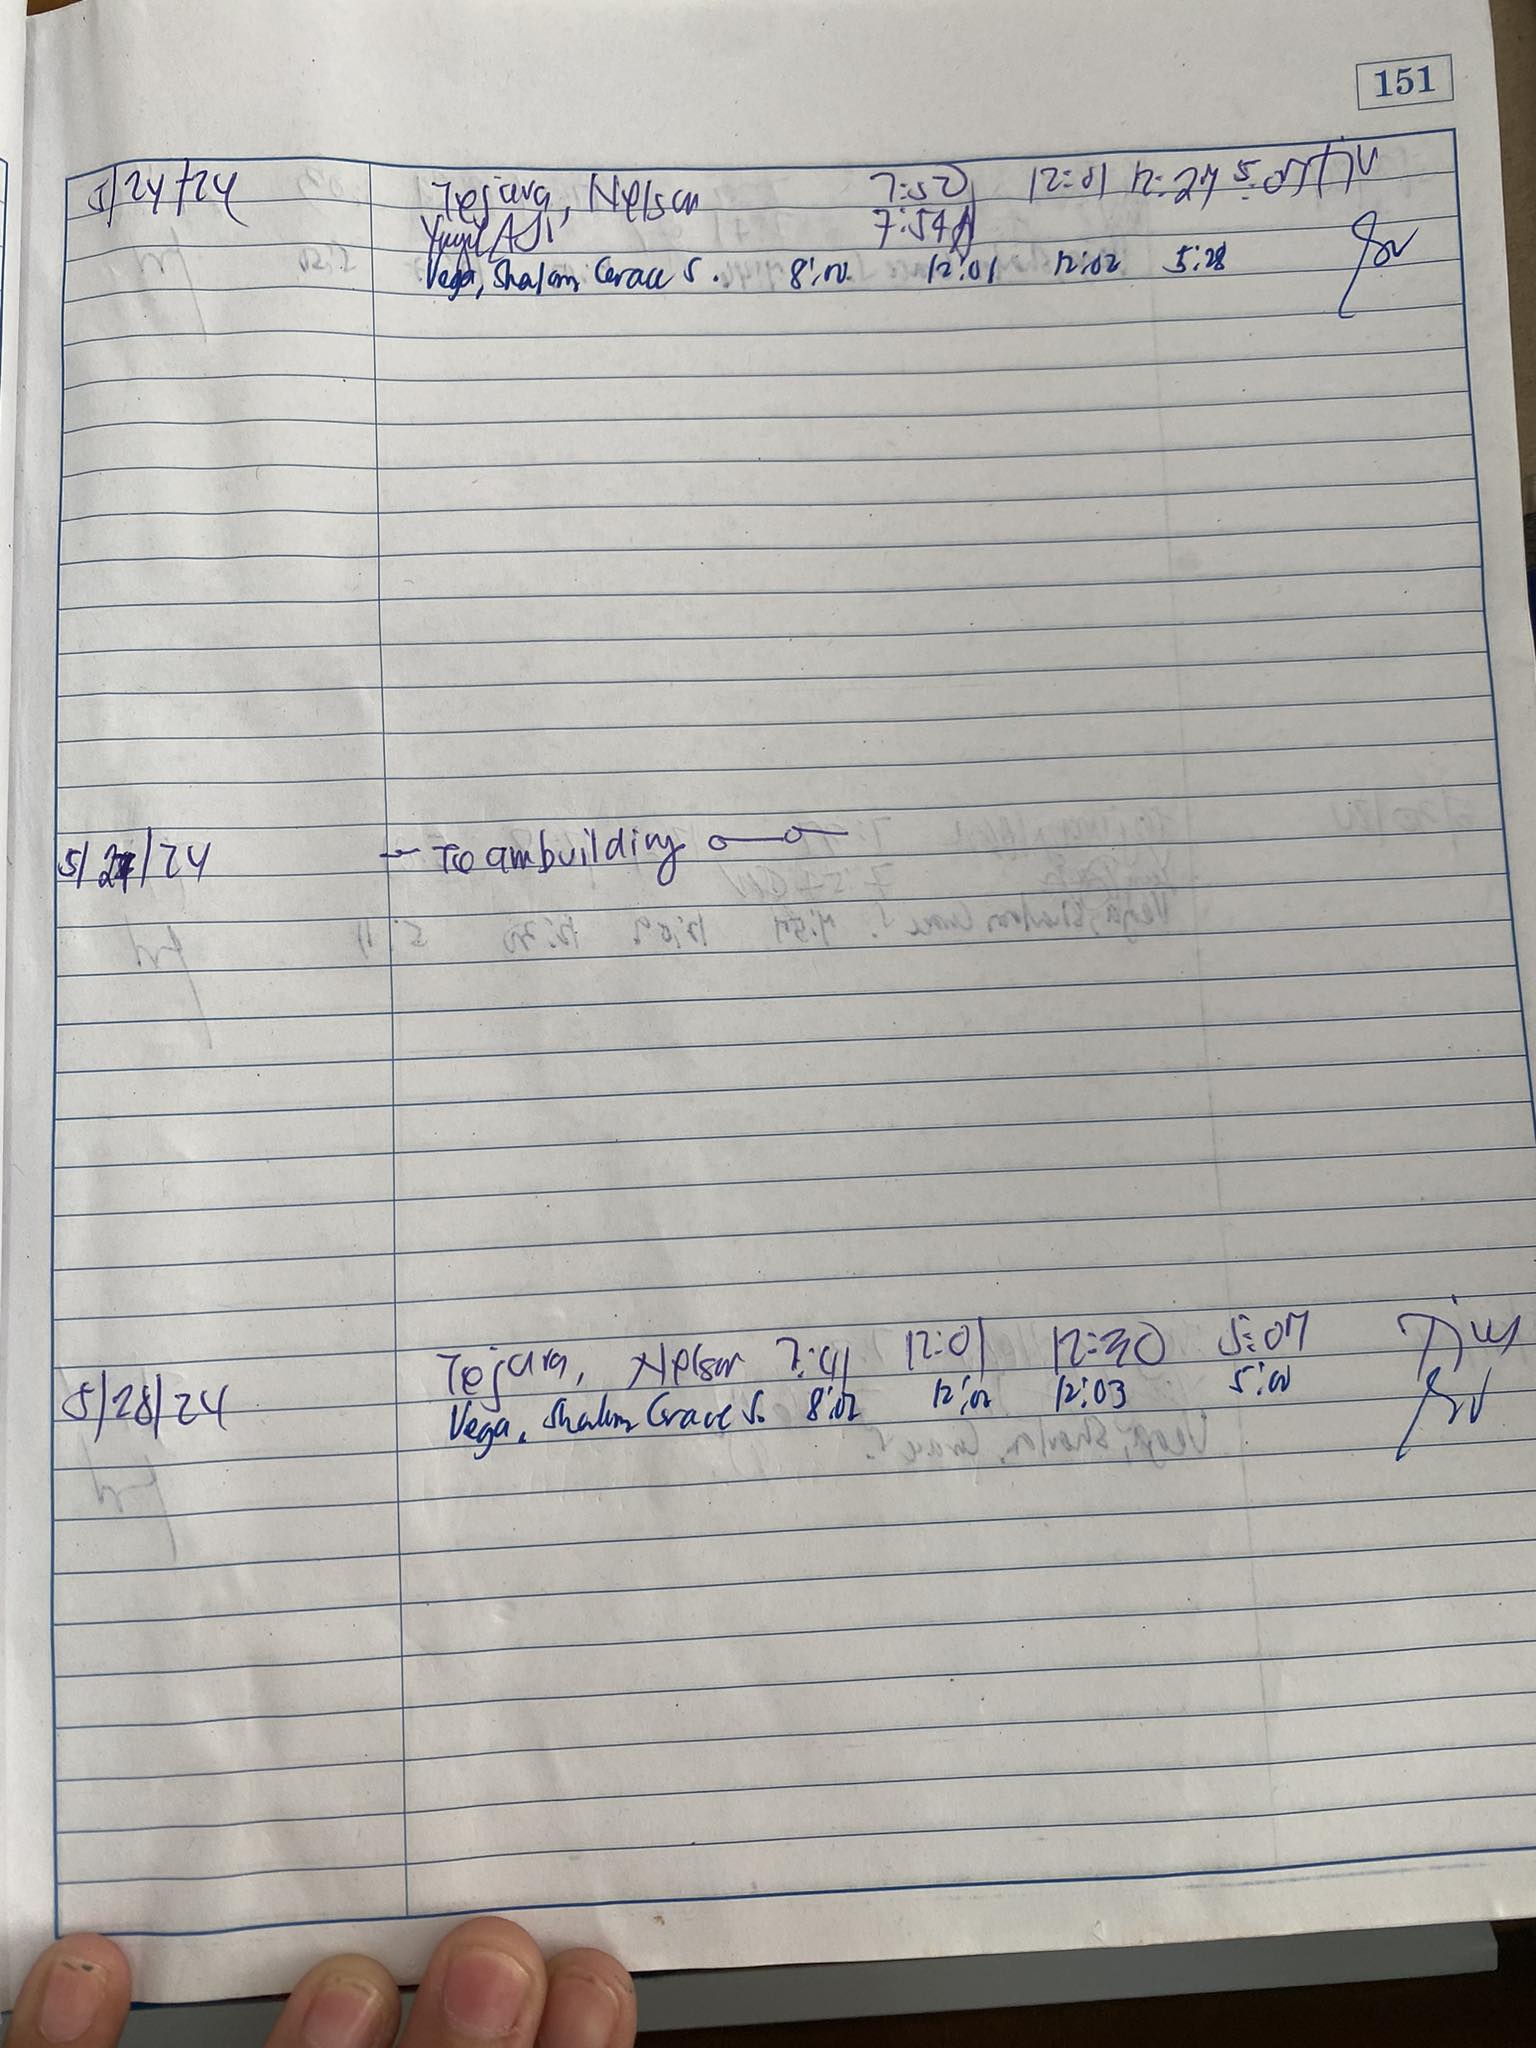 151
5/24/24 Tejara, Nelson 7:52 12:01 12:27 5:07
7:54A
Vega, Shalom Grace S. 8:00 12:01 12:02 5:28
5/27/24 - Teambuilding
Tejara, Nelson 7:41 12:01 12:30 5:07
5/28/24 Vega, Shalom Grace S. 8:02 12:02 12:03 5:00